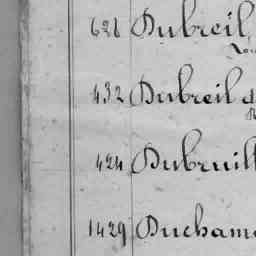 621 Dubreil,
432 Dubreil
424 Dubruill
1429 Ducham